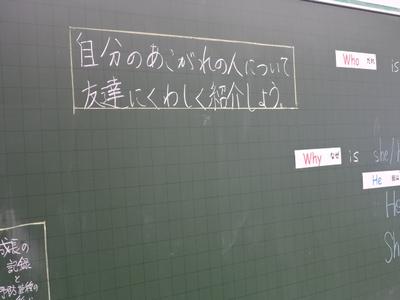 自分のあこがれの人について
友達にくわしく紹介しよう。
Who だれ is
Why なぜ is she/h
He
He
Sh
成長の
記録
と